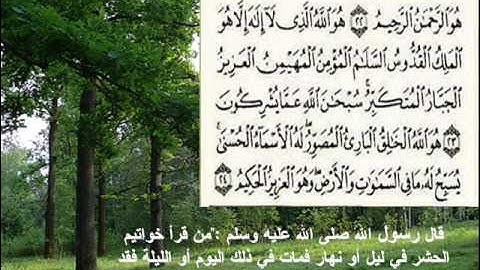 هُوَ ٱلرَّحْمَٰنُ ٱلرَّحِيمُ ٢٢ هُوَ ٱللَّهُ ٱلَّذِى لَآ إِلَٰهَ إِلَّا هُوَ
ٱلْمَلِكُ ٱلْقُدُّوسُ ٱلسَّلَٰمُ ٱلْمُؤْمِنُ ٱلْمُهَيْمِنُ ٱلْعَزِيزُ
ٱلْجَبَّارُ ٱلْمُتَكَبِّرُ سُبْحَٰنَ ٱللَّهِ عَمَّا يُشْرِكُونَ
٢٣ هُوَ ٱللَّهُ ٱلْخَٰلِقُ ٱلْبَارِئُ ٱلْمُصَوِّرُ لَهُ ٱلْأَسْمَآءُ ٱلْحُسْنَىٰ
يُسَبِّحُ لَهُۥ مَا فِى ٱلسَّمَٰوَٰتِ وَٱلْأَرْضِ وَهُوَ ٱلْعَزِيزُ ٱلْحَكِيمُ ٢٤
قال رسول الله صلى الله عليه وسلم :"من قرأ خواتيم
الحشر في ليل أو نهار فمات في ذلك اليوم أو الليلة فقد